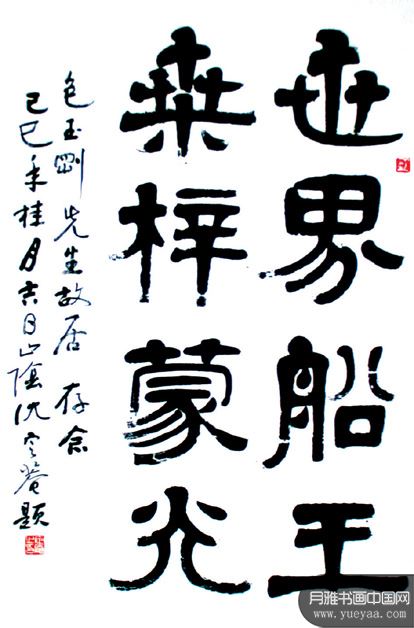 世界船王
桑梓蒙光
包玉剛先生故居 存念
己巳年桂月吉日山陰沈定菴題
月雅书画中国网
www.yueyaa.com